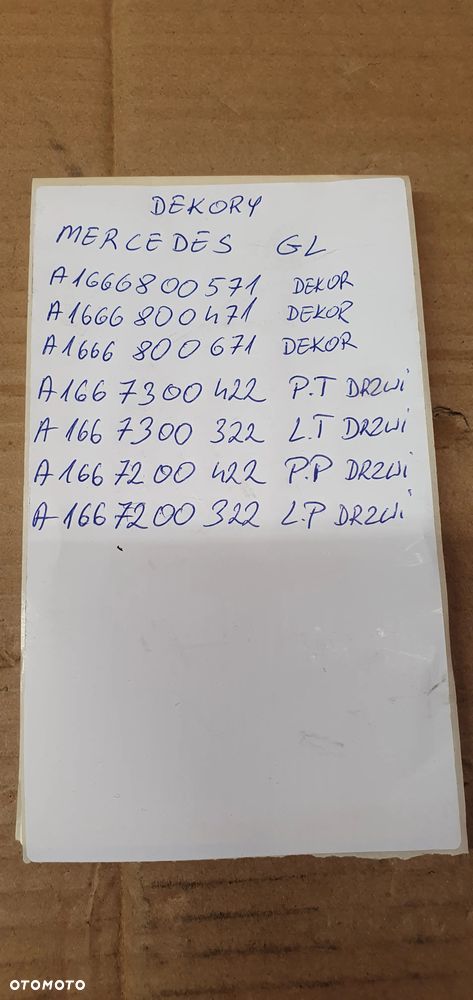 DEKORY
MERCEDES GL
A1666800571 DEKOR
A1666 800471 DEKOR
A1666 800671 DEKOR
A166 7300 422 P.T DRZWI
A 166 7300 322 L.T DRZWI
A 166 7200 422 P.P DRZWI
A 166 7200 322 L.P DRZWI
OTOMOTO